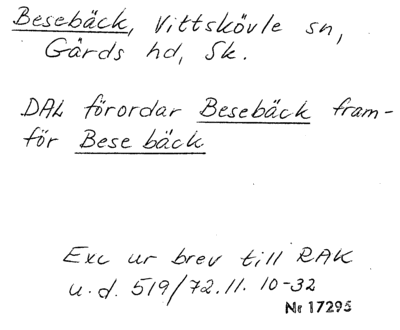 Besebäck, Vittskövle sn,
Gärds hd, Sk.
DAL förordar Besebäck fram-
för Bese bäck
Exc ur brev till RAK
u.d. 519/72.11. 10-32
Nr 17295